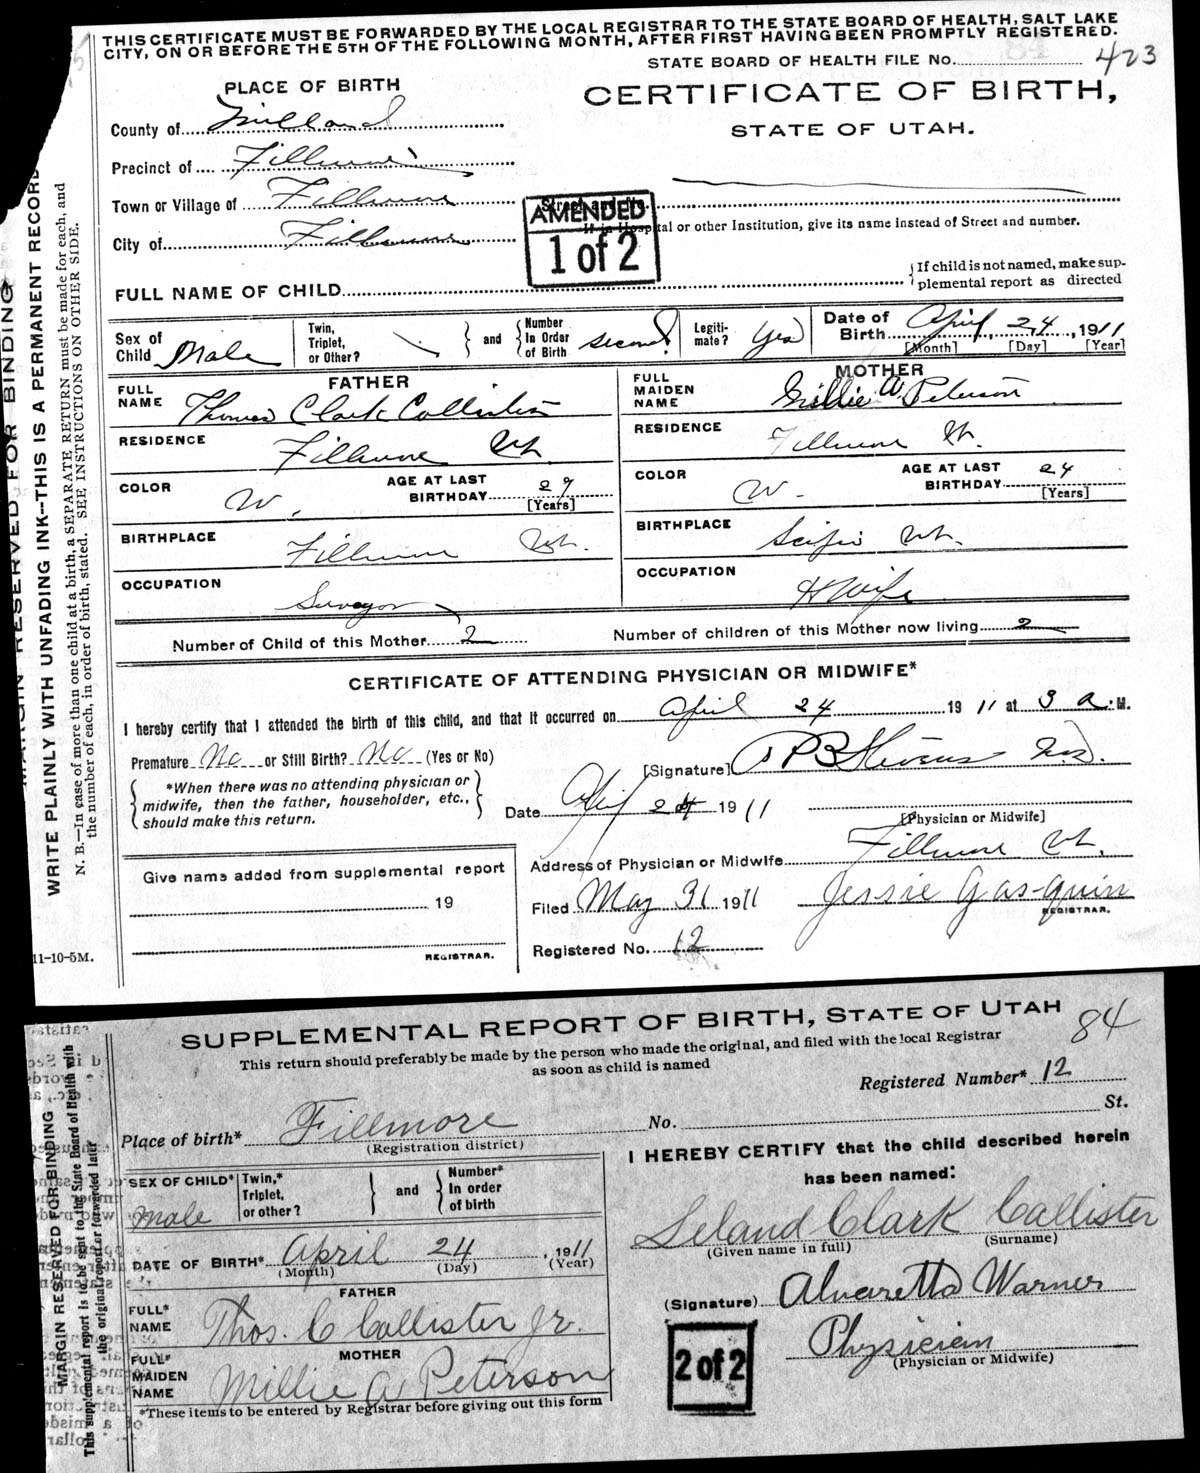 THIS CERTIFICATE MUST BE FORWARDED BY THE LOCAL REGISTRAR TO THE STATE BOARD OF HEALTH, SALT LAKE
CITY, ON OR BEFORE THE 5TH OF THE FOLLOWING MONTH, AFTER FIRST HAVING BEEN PROMPTLY REGISTERED.
STATE BOARD OF HEALTH FILE No. 423
PLACE OF BIRTH
CERTIFICATE OF BIRTH,
STATE OF UTAH.
County of Millard
Precinct of Fillmore
Town or Village of Fillmore
City of Fillmore
Street and No.
If in Hospital or other Institution, give its name instead of Street and number.
AMENDED
1 of 2
FULL NAME OF CHILD
If child is not named, make sup-
plemental report as directed
Sex of Child Male
Twin, Triplet, or Other?
and
Number In Order of Birth second
Legiti-mate? Yes
Date of Birth April 24, 1911
[Month] [Day] [Year]
FATHER
FULL NAME Thomas Clark Callister
RESIDENCE Fillmore Ut.
COLOR W.
AGE AT LAST BIRTHDAY 29 [Years]
BIRTHPLACE Fillmore Ut.
OCCUPATION Surveyor
MOTHER
FULL MAIDEN NAME Millie A. Peterson
RESIDENCE Fillmore Ut.
COLOR W.
AGE AT LAST BIRTHDAY 24 [Years]
BIRTHPLACE Scipio Ut.
OCCUPATION H Wife
Number of Child of this Mother 2
Number of children of this Mother now living 2
CERTIFICATE OF ATTENDING PHYSICIAN OR MIDWIFE*
I hereby certify that I attended the birth of this child, and that it occurred on April 24 1911 at 3 a.M.
Premature No or Still Birth? No (Yes or No)
*When there was no attending physician or
midwife, then the father, householder, etc.,
should make this return.
[Signature] Stevens M.D.
Date April 24 1911
[Physician or Midwife]
Address of Physician or Midwife Fillmore Ut.
Give name added from supplemental report
19
REGISTRAR.
Filed May 31 1911 Jessie Gasquin
REGISTRAR.
Registered No. 12
11-10-5M.
MARGIN RESERVED FOR BINDING
WRITE PLAINLY WITH UNFADING INK--THIS IS A PERMANENT RECORD
N. B.—In case of more than one child at a birth, a SEPARATE RETURN must be made for each, and
the number of each, in order of birth, stated. SEE INSTRUCTIONS ON OTHER SIDE.
SUPPLEMENTAL REPORT OF BIRTH, STATE OF UTAH 84
This return should preferably be made by the person who made the original, and filed with the local Registrar
as soon as child is named
Registered Number* 12
Place of birth* Fillmore No. St.
(Registration district)
SEX OF CHILD* Male
Twin,* Triplet, or other?
and
Number* In order of birth
DATE OF BIRTH* April 24, 1911
(Month) (Day) (Year)
FATHER
FULL* NAME Thos. C Callister Jr.
MOTHER
FULL* MAIDEN NAME Millie A Peterson
*These items to be entered by Registrar before giving out this form
I HEREBY CERTIFY that the child described herein
has been named:
Leland Clark Callister
(Given name in full) (Surname)
(Signature) Alvaretta Warner
Physician
(Physician or Midwife)
2 of 2
MARGIN RESERVED FOR BINDING
This supplemental report is to be sent to the State Board of Health with
the original report or forwarded later